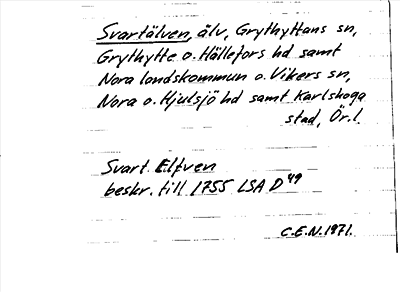 Svartälven, älv, Grythyttans sn,
Grythytte o. Hällefors hd samt
Nora landskommun o. Vikers sn,
Nora o. Hjulsjö hd samt Karlskoga
stad, Ör. l.
Svart Elfven
beskr. till 1755 LSA D⁴⁹
C.E.N. 1971.